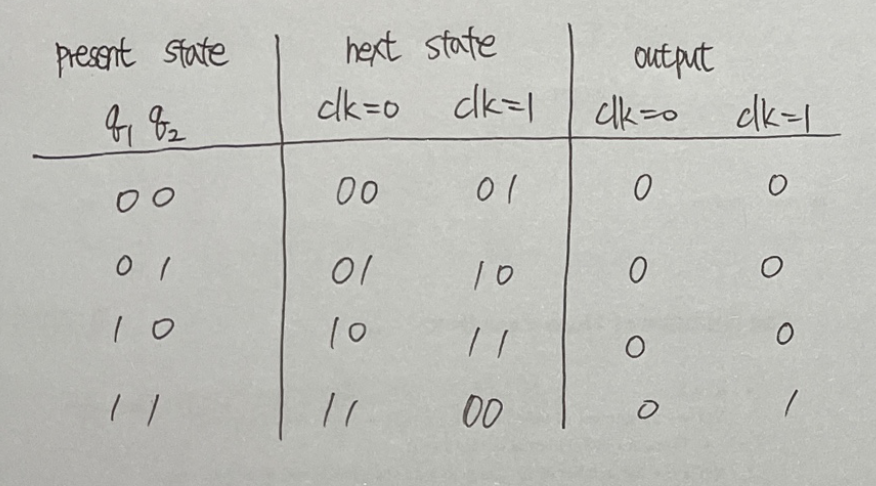 present state next state output
q1 q2 clk=0 clk=1 clk=0 clk=1
00 00 01 0 0
01 01 10 0 0
10 10 11 0 0
11 11 00 0 1